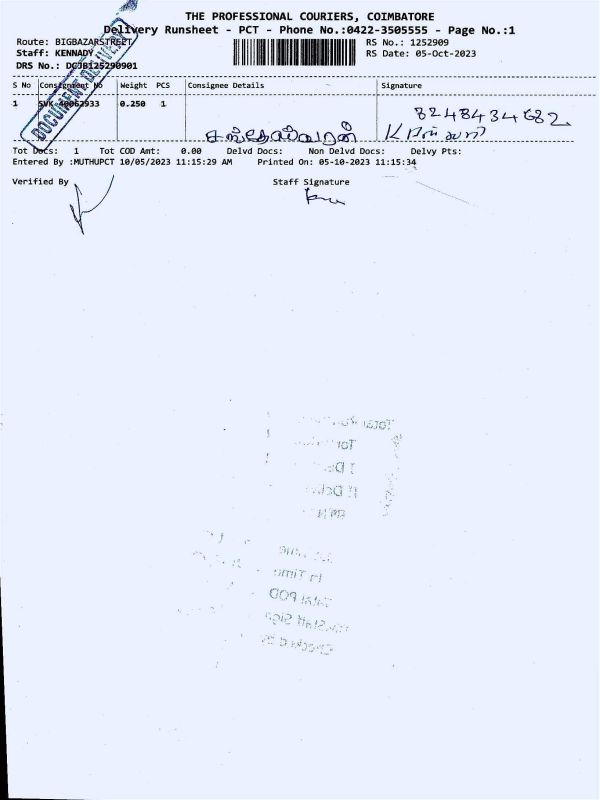 THE PROFESSIONAL COURIERS, COIMBATORE
Delivery Runsheet - PCT - Phone No.:0422-3505555 - Page No.:1
Route: BIGBAZARSTREET
RS No.: 1252909
Staff: KENNADY
RS Date: 05-Oct-2023
DRS No.: DCJB125290901
DOCUMENT DELIVERY
S No Consignment No Weight PCS Consignee Details Signature
1 SVK 40062933 0.250 1
8248434682
Tot Docs: 1 Tot COD Amt: 0.00 Delvd Docs: Non Delvd Docs: Delvy Pts:
Entered By :MUTHUPCT 10/05/2023 11:15:29 AM Printed On: 05-10-2023 11:15:34
Verified By Staff Signature
In Time
Total POD
Staff Sign
Checked By